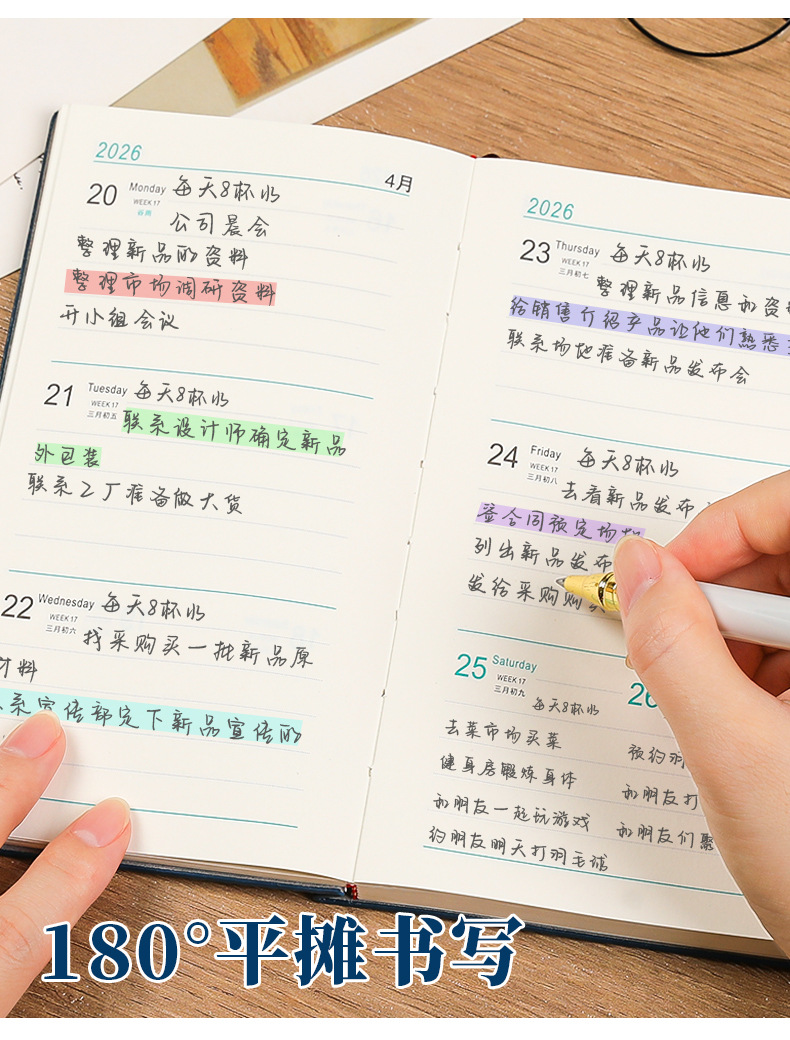 2026
4月
20 Monday 每天8杯水
WEEK 17
谷雨
公司晨会
整理新品的资料
整理市场调研资料
开小组会议
21 Tuesday 每天8杯水
WEEK 17
三月初五
联系设计师确定新品
外包装
联系工厂准备做大货
22 Wednesday 每天8杯水
WEEK 17
三月初六
找采购买一批新品原
材料
系宣传部定下新品宣传的
2026
23 Thursday 每天8杯水
WEEK 17
三月初七
整理新品信息和资
给销售介绍产品让他们熟悉
联系场地准备新品发布会
24 Friday 每天8杯水
WEEK 17
三月初八
去看新品发布
签合同预定场地
列出新品发布
发给采购购
25 Saturday
WEEK 17
三月初九
每天8杯水
去菜市场买菜
健身房锻炼身体
和朋友一起玩游戏
约朋友明天打羽毛球
26
预约羽
和朋友打
和朋友们聚
180°平摊书写